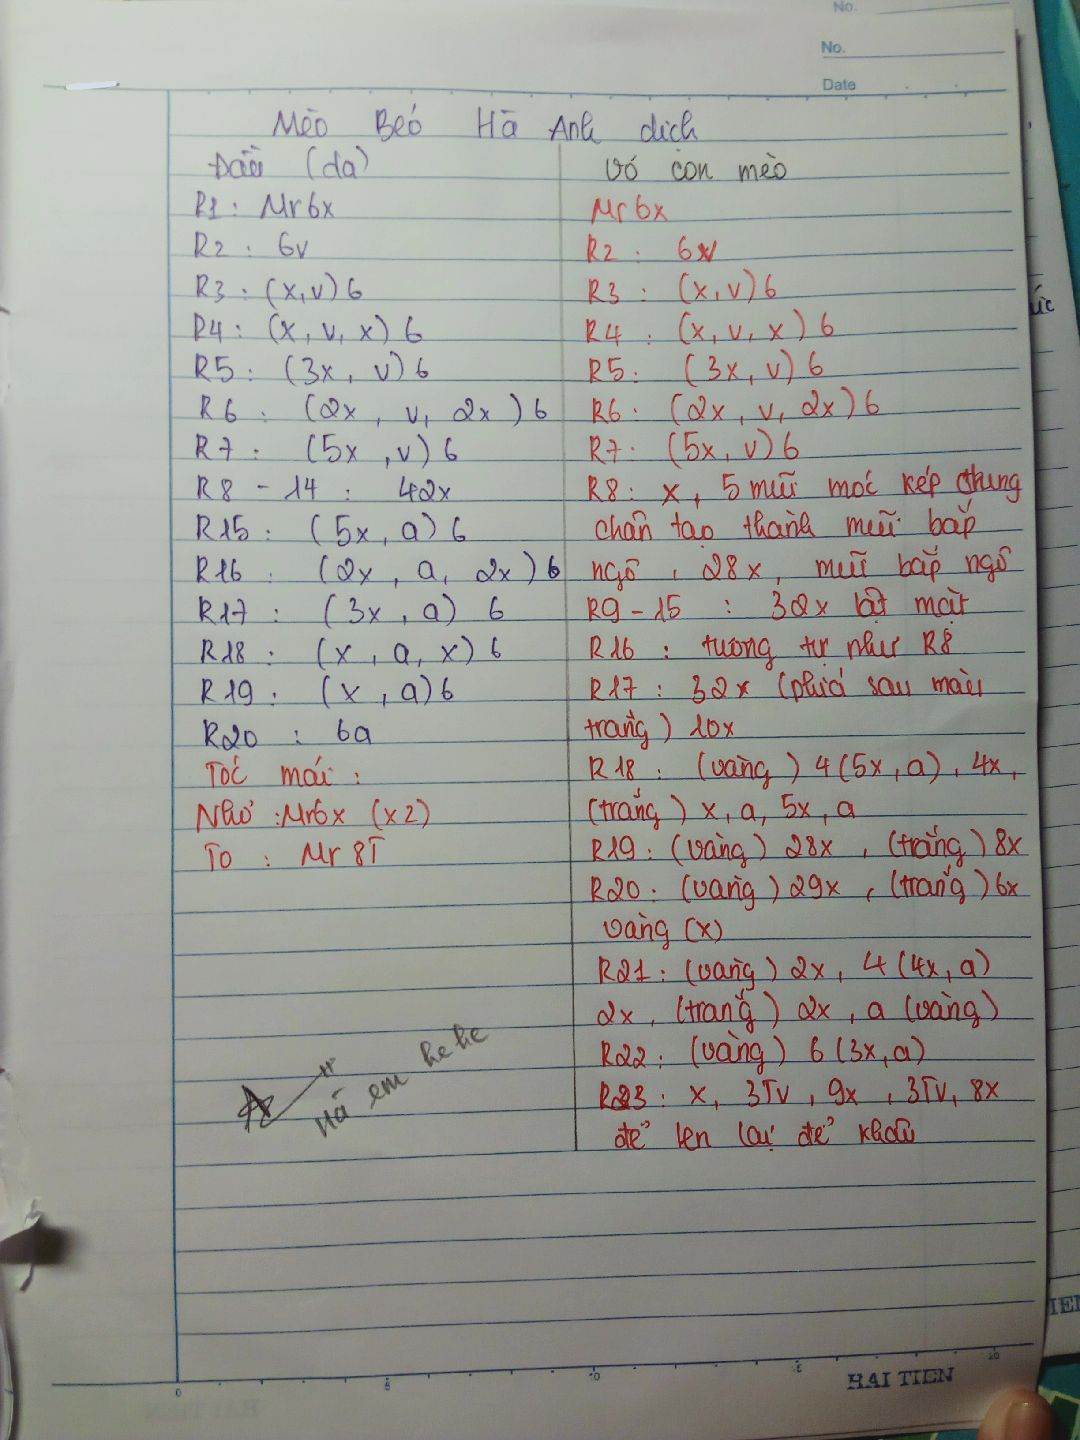 No.
No.
Date
Mèo Béo Hà Anh dịch
Đầu (da)
R1: Mr6x
R2: 6v
R3: (x,v)6
R4: (x, v, x) 6
R5: (3x, v) 6
R6: (2x, v, 2x) 6
R7: (5x, v) 6
R8 - 14: 42x
R15: (5x, a) 6
R16: (2x, a, 2x) 6
R17: (3x, a) 6
R18: (x, a, x) 6
R19: (x, a) 6
R20: 6a
Tóc mái:
Nhỏ: Mr6x (x2)
To: Mr 8T
Hà em hehe
Vỏ con mèo
Mr6x
R2: 6v
R3: (x,v)6
R4: (x, v, x) 6
R5: (3x, v) 6
R6: (2x, v, 2x) 6
R7: (5x, v) 6
R8: x, 5 mũi móc kép chung
chân tạo thành mũi bắp
ngô, 28x, mũi bắp ngô
R9 - 15: 32x lật mặt
R16: tương tự như R8
R17: 32x (phía sau màu
trắng) 10x
R18: (vàng) 4(5x, a), 4x,
(trắng) x, a, 5x, a
R19: (vàng) 28x, (trắng) 8x
R20: (vàng) 29x, (trắng) 6x
vàng (x)
R21: (vàng) 2x, 4 (4x, a)
2x, (trắng) 2x, a (vàng)
R22: (vàng) 6 (3x, a)
R23: x, 3Tv, 9x, 3Tv, 8x
để len lại để khâu
HAI TIEN
0
5
10
15
20